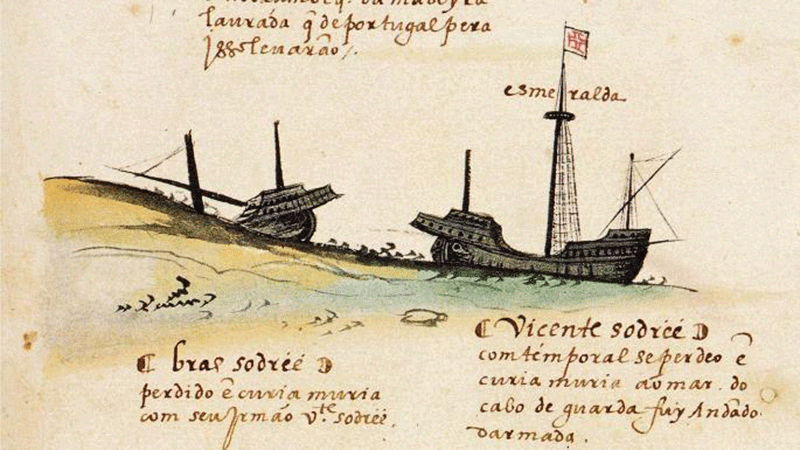 da madeyra
laurada q̃ de portugal pera
Jsso leuarão /.
esmeralda
bras sodréé
perdido ẽ curia muria
com seu Jrmão v.te sodréé.
Vicente sodréé
com témporal se perdeo ẽ
curia muria ao mar do
cabo de guarda fuy Andãdo
darmada.